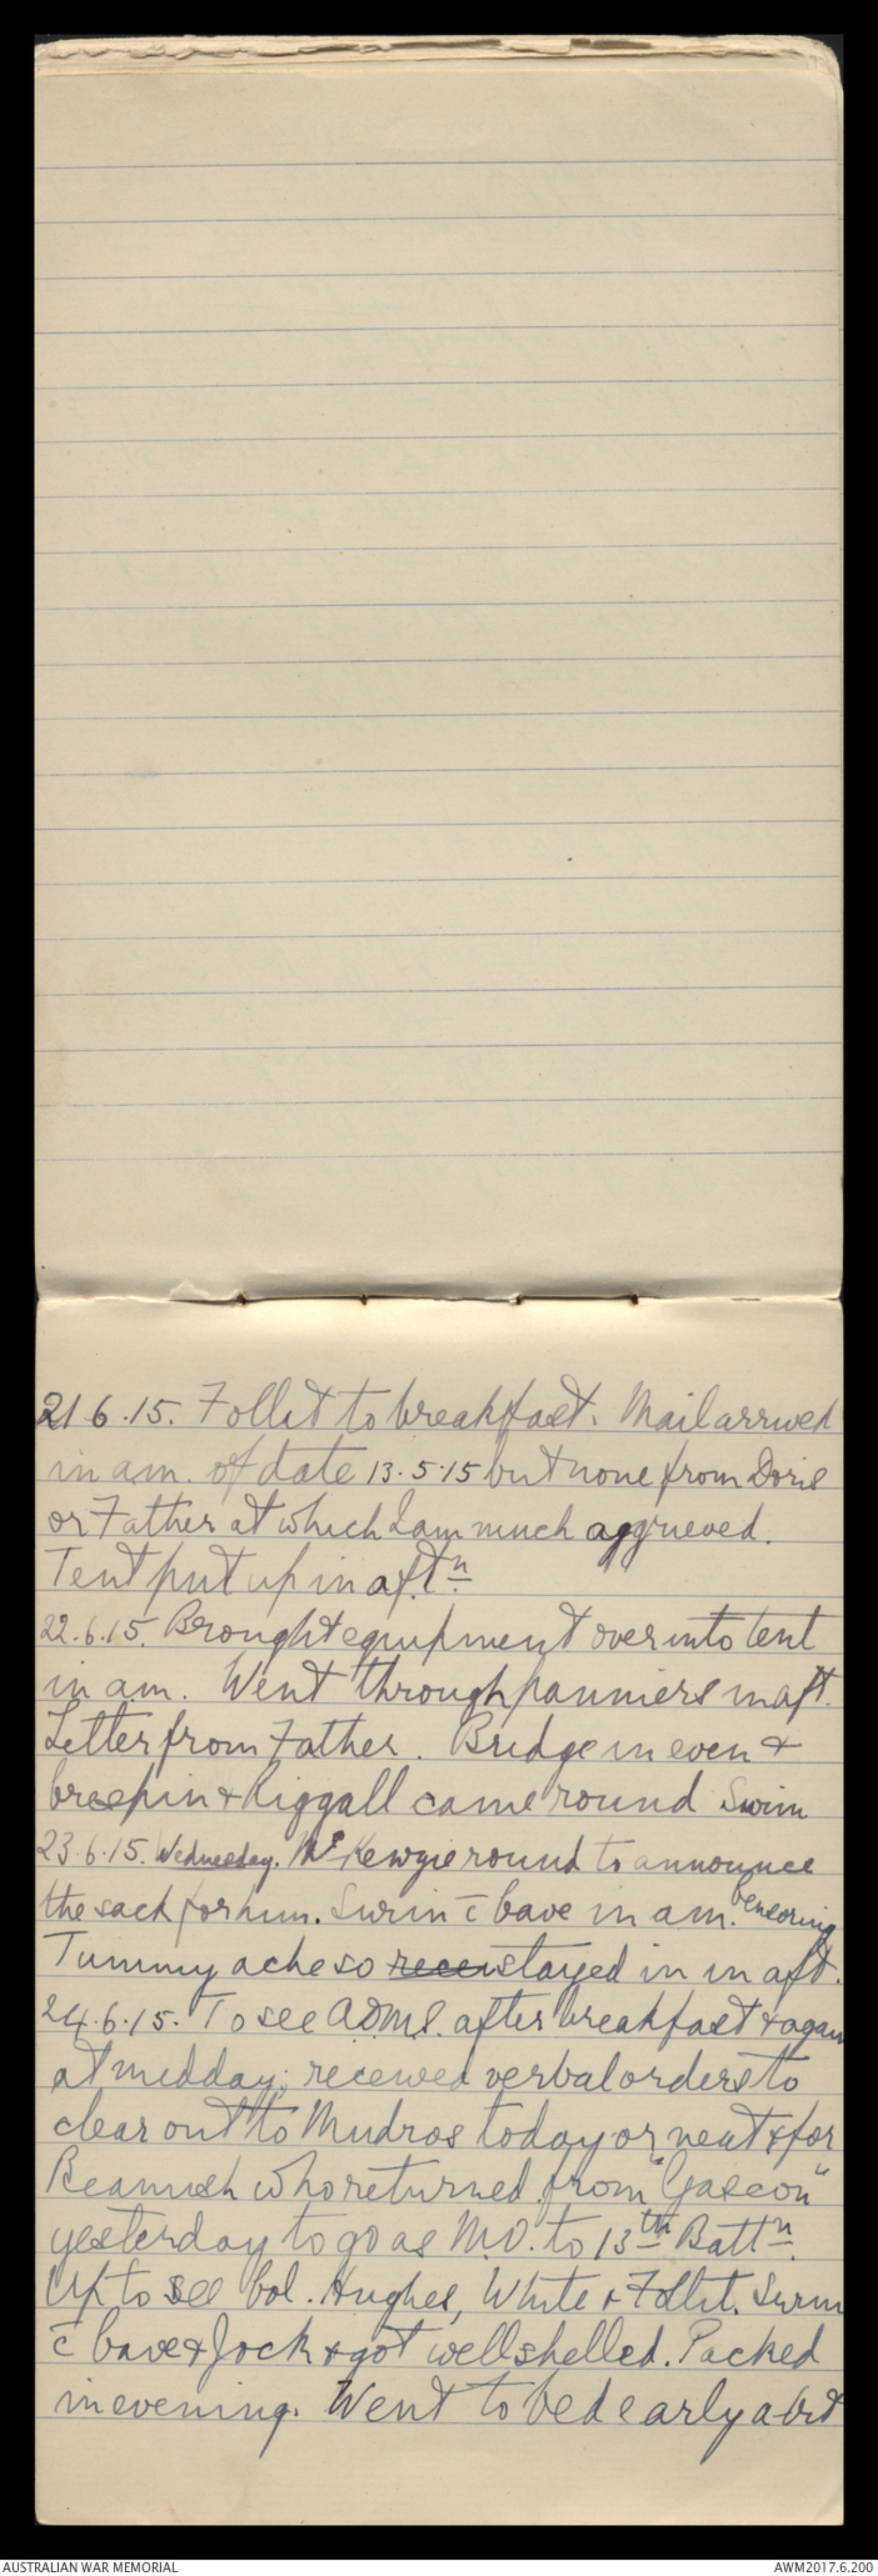 21.6.15. Follit to breakfast. Mail arrived
in am. of date 13.5.15 but none from Doris
or Father at which I am much aggrieved.
Tent put up in aftn.
22.6.15. Brought equipment over into tent
in am. Went through panniers in aft.
Letter from Father. Bridge in even &
Crespin & Riggall came round Swim
23.6.15. Wednesday. round to announce
the sack for him. Swim c̄ Cave in am.
Tummy ache so stayed in in aft.
24.6.15. To see ADMS. after breakfast & again
at midday; received verbal orders to
clear out to Mudros today or next & for
Beamish who returned from "Gascon"
yesterday to go as M.O. to 13th Battn.
Up to see Col. Hughes, White & Follit. Swim
c̄ Cave & Jock & got well shelled. Packed
in evening. Went to bed early a bit
AUSTRALIAN WAR MEMORIAL
AWM2017.6.200